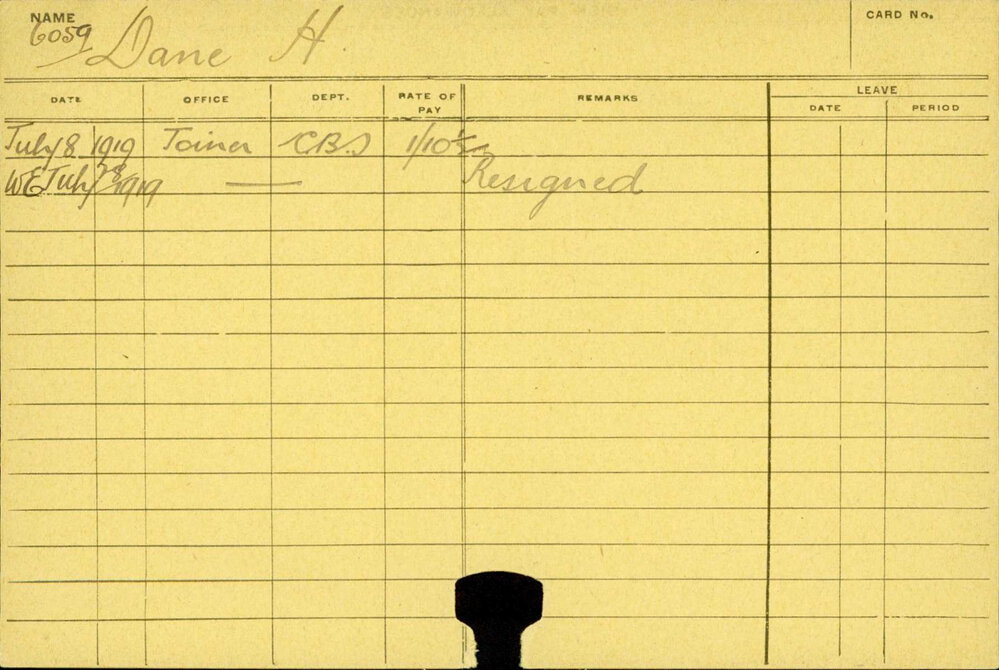 NAME CARD No.
6059 Dane H.
LEAVE
DATE OFFICE DEPT. RATE OF PAY REMARKS DATE PERIOD
July 8 1919 Joiner C.B.S 1/10½
WE July 1919 — Resigned